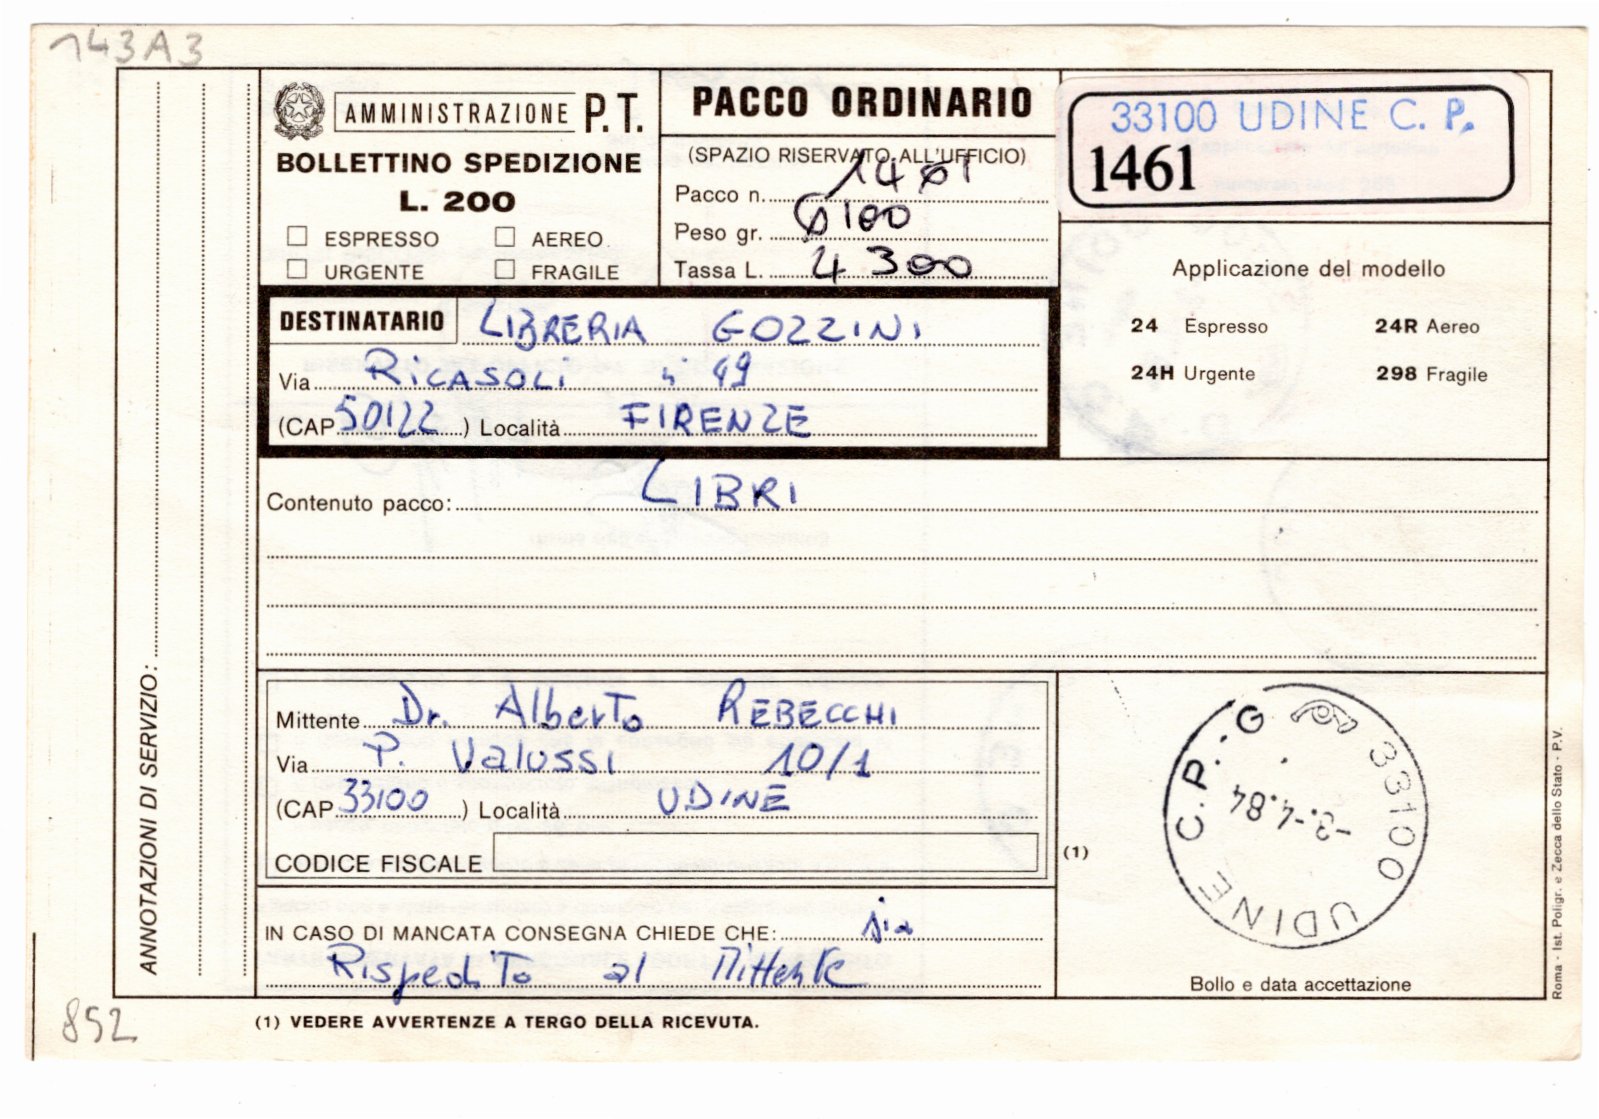 143A3
AMMINISTRAZIONE P.T.
BOLLETTINO SPEDIZIONE
L. 200
ESPRESSO AEREO
URGENTE FRAGILE
PACCO ORDINARIO
(SPAZIO RISERVATO ALL'UFFICIO)
Pacco n. 1461
Peso gr. 6100
Tassa L. 4300
33100 UDINE C. P.
1461
Applicazione del modello
24 Espresso 24R Aereo
24H Urgente 298 Fragile
DESTINATARIO LIBRERIA GOZZINI
Via RICASOLI n 49
(CAP 50122) Località FIRENZE
Contenuto pacco: LIBRI
Mittente Dr. Alberto REBECCHI
Via P. Valussi 10/1
(CAP 33100) Località UDINE
CODICE FISCALE
IN CASO DI MANCATA CONSEGNA CHIEDE CHE: sia
Rispedito al Mittente
(1)
33100 UDINE C.P.-G
-3.-4.84
Bollo e data accettazione
ANNOTAZIONI DI SERVIZIO:
Roma - Ist. Poligr. e Zecca dello Stato - P.V.
852
(1) VEDERE AVVERTENZE A TERGO DELLA RICEVUTA.